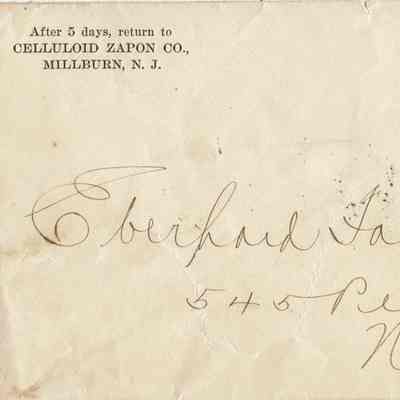 After 5 days, return to
CELLULOID ZAPON CO.,
MILLBURN, N. J.
Eberhard Fa
545 Pe
N